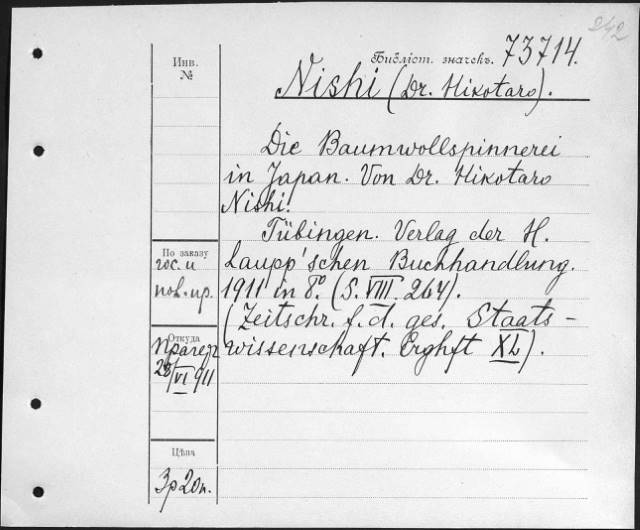 242
Инв.
№
Библіот. значекъ. 73714.
Nishi (Dr. Hikotaro).
Die Baumwollspinnerei
in Japan. Von Dr. Hikotaro
Nishi.
Tübingen. Verlag der H.
Laupp'schen Buchhandlung.
1911 in 8°. (S. VIII. 264).
(Zeitschr. f. d. ges. Staats-
wissenschaft. Erghft XL).
По заказу
гос. и
пол. пр.
Откуда
Прагеръ
28/VI 911
Цѣна
3р 20к.